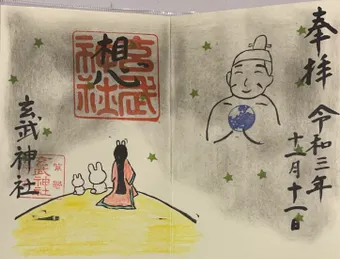 奉拝
令和三年
十一月十一日
想
玄武
神社
玄武神社
紫野
玄武神社